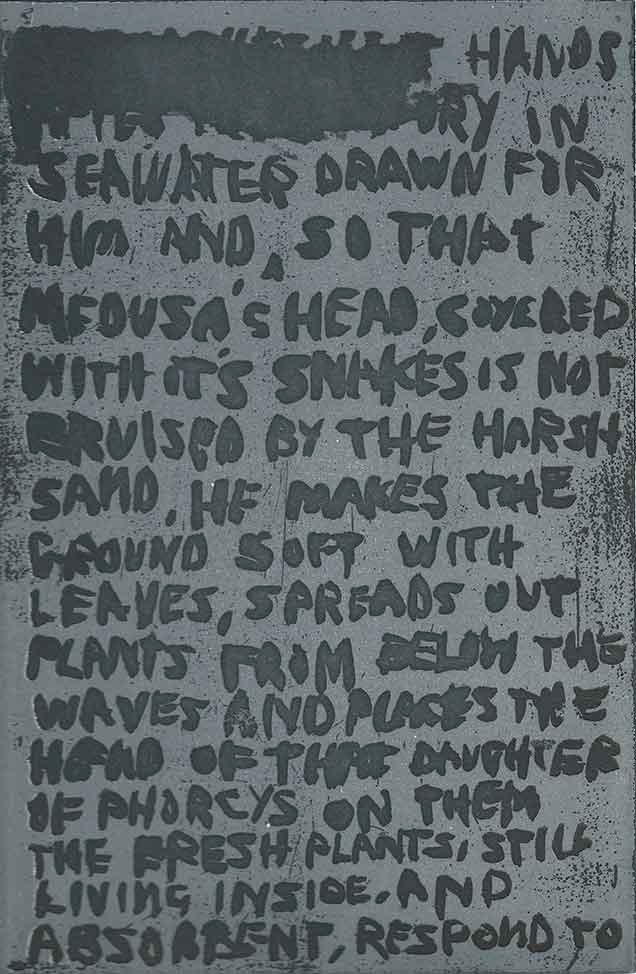 HANDS
IN
SEAWATER DRAWN FOR
HIM AND, SO THAT
MEDUSA'S HEAD, COVERED
WITH IT'S SNAKES IS NOT
BRUISED BY THE HARSH
SAND, HE MAKES THE
GROUND SOFT WITH
LEAVES, SPREADS OUT
PLANTS FROM BELOW THE
WAVES AND PLACES THE
HEAD OF THAT DAUGHTER
OF PHORCYS ON THEM
THE FRESH PLANTS, STILL
LIVING INSIDE, AND
ABSORBENT, RESPOND TO